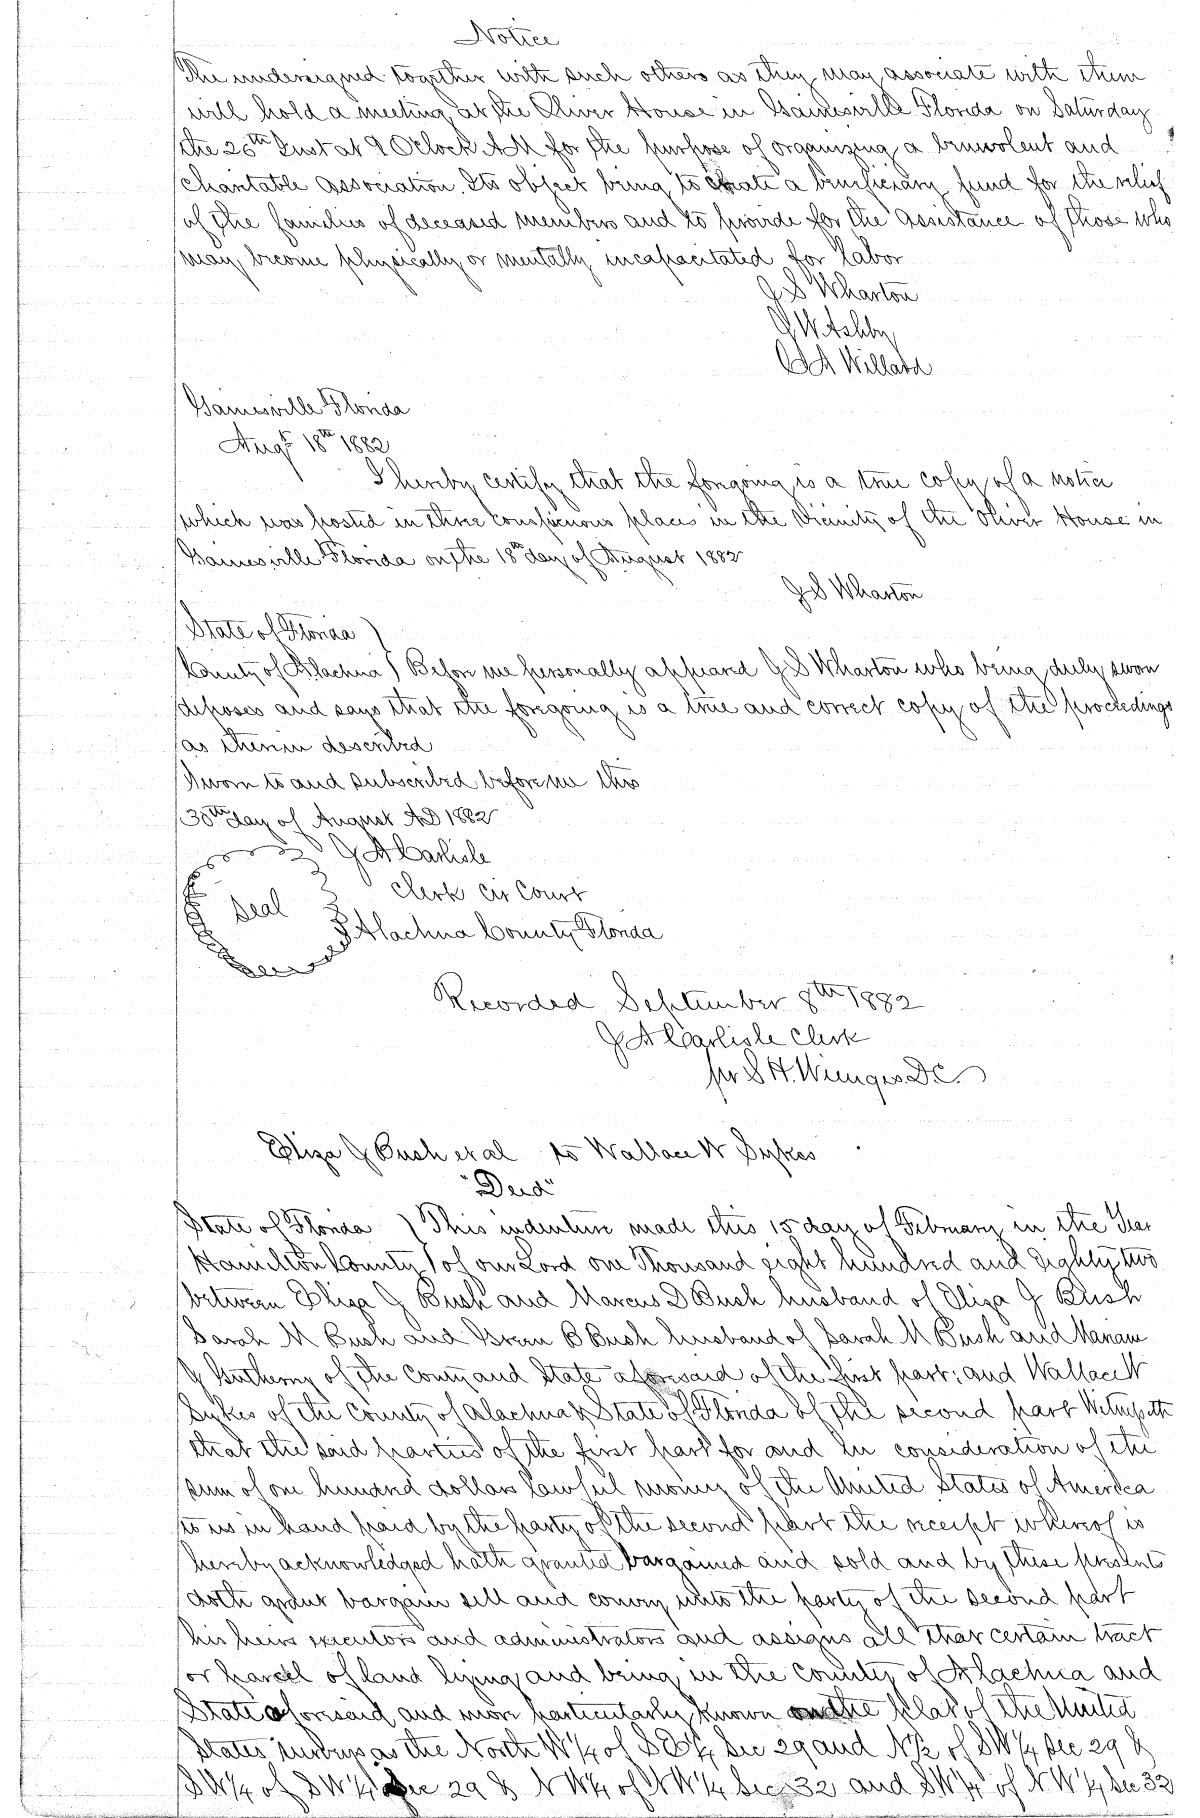 Notice
The undersigned together with such others as they may associate with them
will hold a meeting at the Oliver House in Gainesville Florida on Saturday
the 26th Inst at 9 OClock AM for the purpose of organizing a benevolent and
Charitable Association. Its object being to create a beneficiary fund for the relief
of the families of deceased members and to provide for the assistance of those who
may become physically or mentally incapacitated for labor
J S Wharton
J W Ashby
Willard
Gainesville Florida
Augt 18th 1882
I hereby certify that the foregoing is a true copy of a notice
which was posted in three conspicuous places in the Vicinity of the Oliver House in
Gainesville Florida on the 18th day of August 1882
J S Wharton
State of Florida )
County of Alachua ) Before me personally appeared J S Wharton who being duly sworn
deposes and says that the foregoing is a true and correct copy of the proceedings
as therein described
Sworn to and subscribed before me this
30th day of August AD 1882
J A Carlisle
Seal
Clerk Cir Court
Alachua County Florida
Recorded September 8th 1882
J A Carlisle Clerk
pr S H. Wienges D.C.
Eliza J Bush et al to Wallace W Sykes
"Deed"
State of Florida ) This indenture made this 15 day of February in the Year
Hamilton County ) of our Lord one Thousand eight hundred and Eighty two
between Eliza J Bush and Marcus D Bush husband of Eliza J Bush
Sarah M Bush and Green B Bush husband of Sarah M Bush and
J of the County and State aforesaid of the first part; and Wallace W
Sykes of the County of Alachua & State of Florida of the second part Witnesseth
that the said parties of the first part for and in consideration of the
sum of one hundred dollars lawful money of the United States of America
to us in hand paid by the party of the second part the receipt whereof is
hereby acknowledged hath granted bargained and sold and by these presents
doth grant bargain sell and convey unto the party of the second part
his heirs executors and administrators and assigns all that certain tract
or parcell of land lying and being in the County of Alachua and
State aforesaid and more particularly known on the plat of the United
States surveys as the North W¼ of S E¼ Sec 29 and N½ of SW¼ Sec 29 &
SW¼ of SW¼ Sec 29 & NW¼ of NW¼ Sec 32 and SW¼ of NW¼ Sec 32